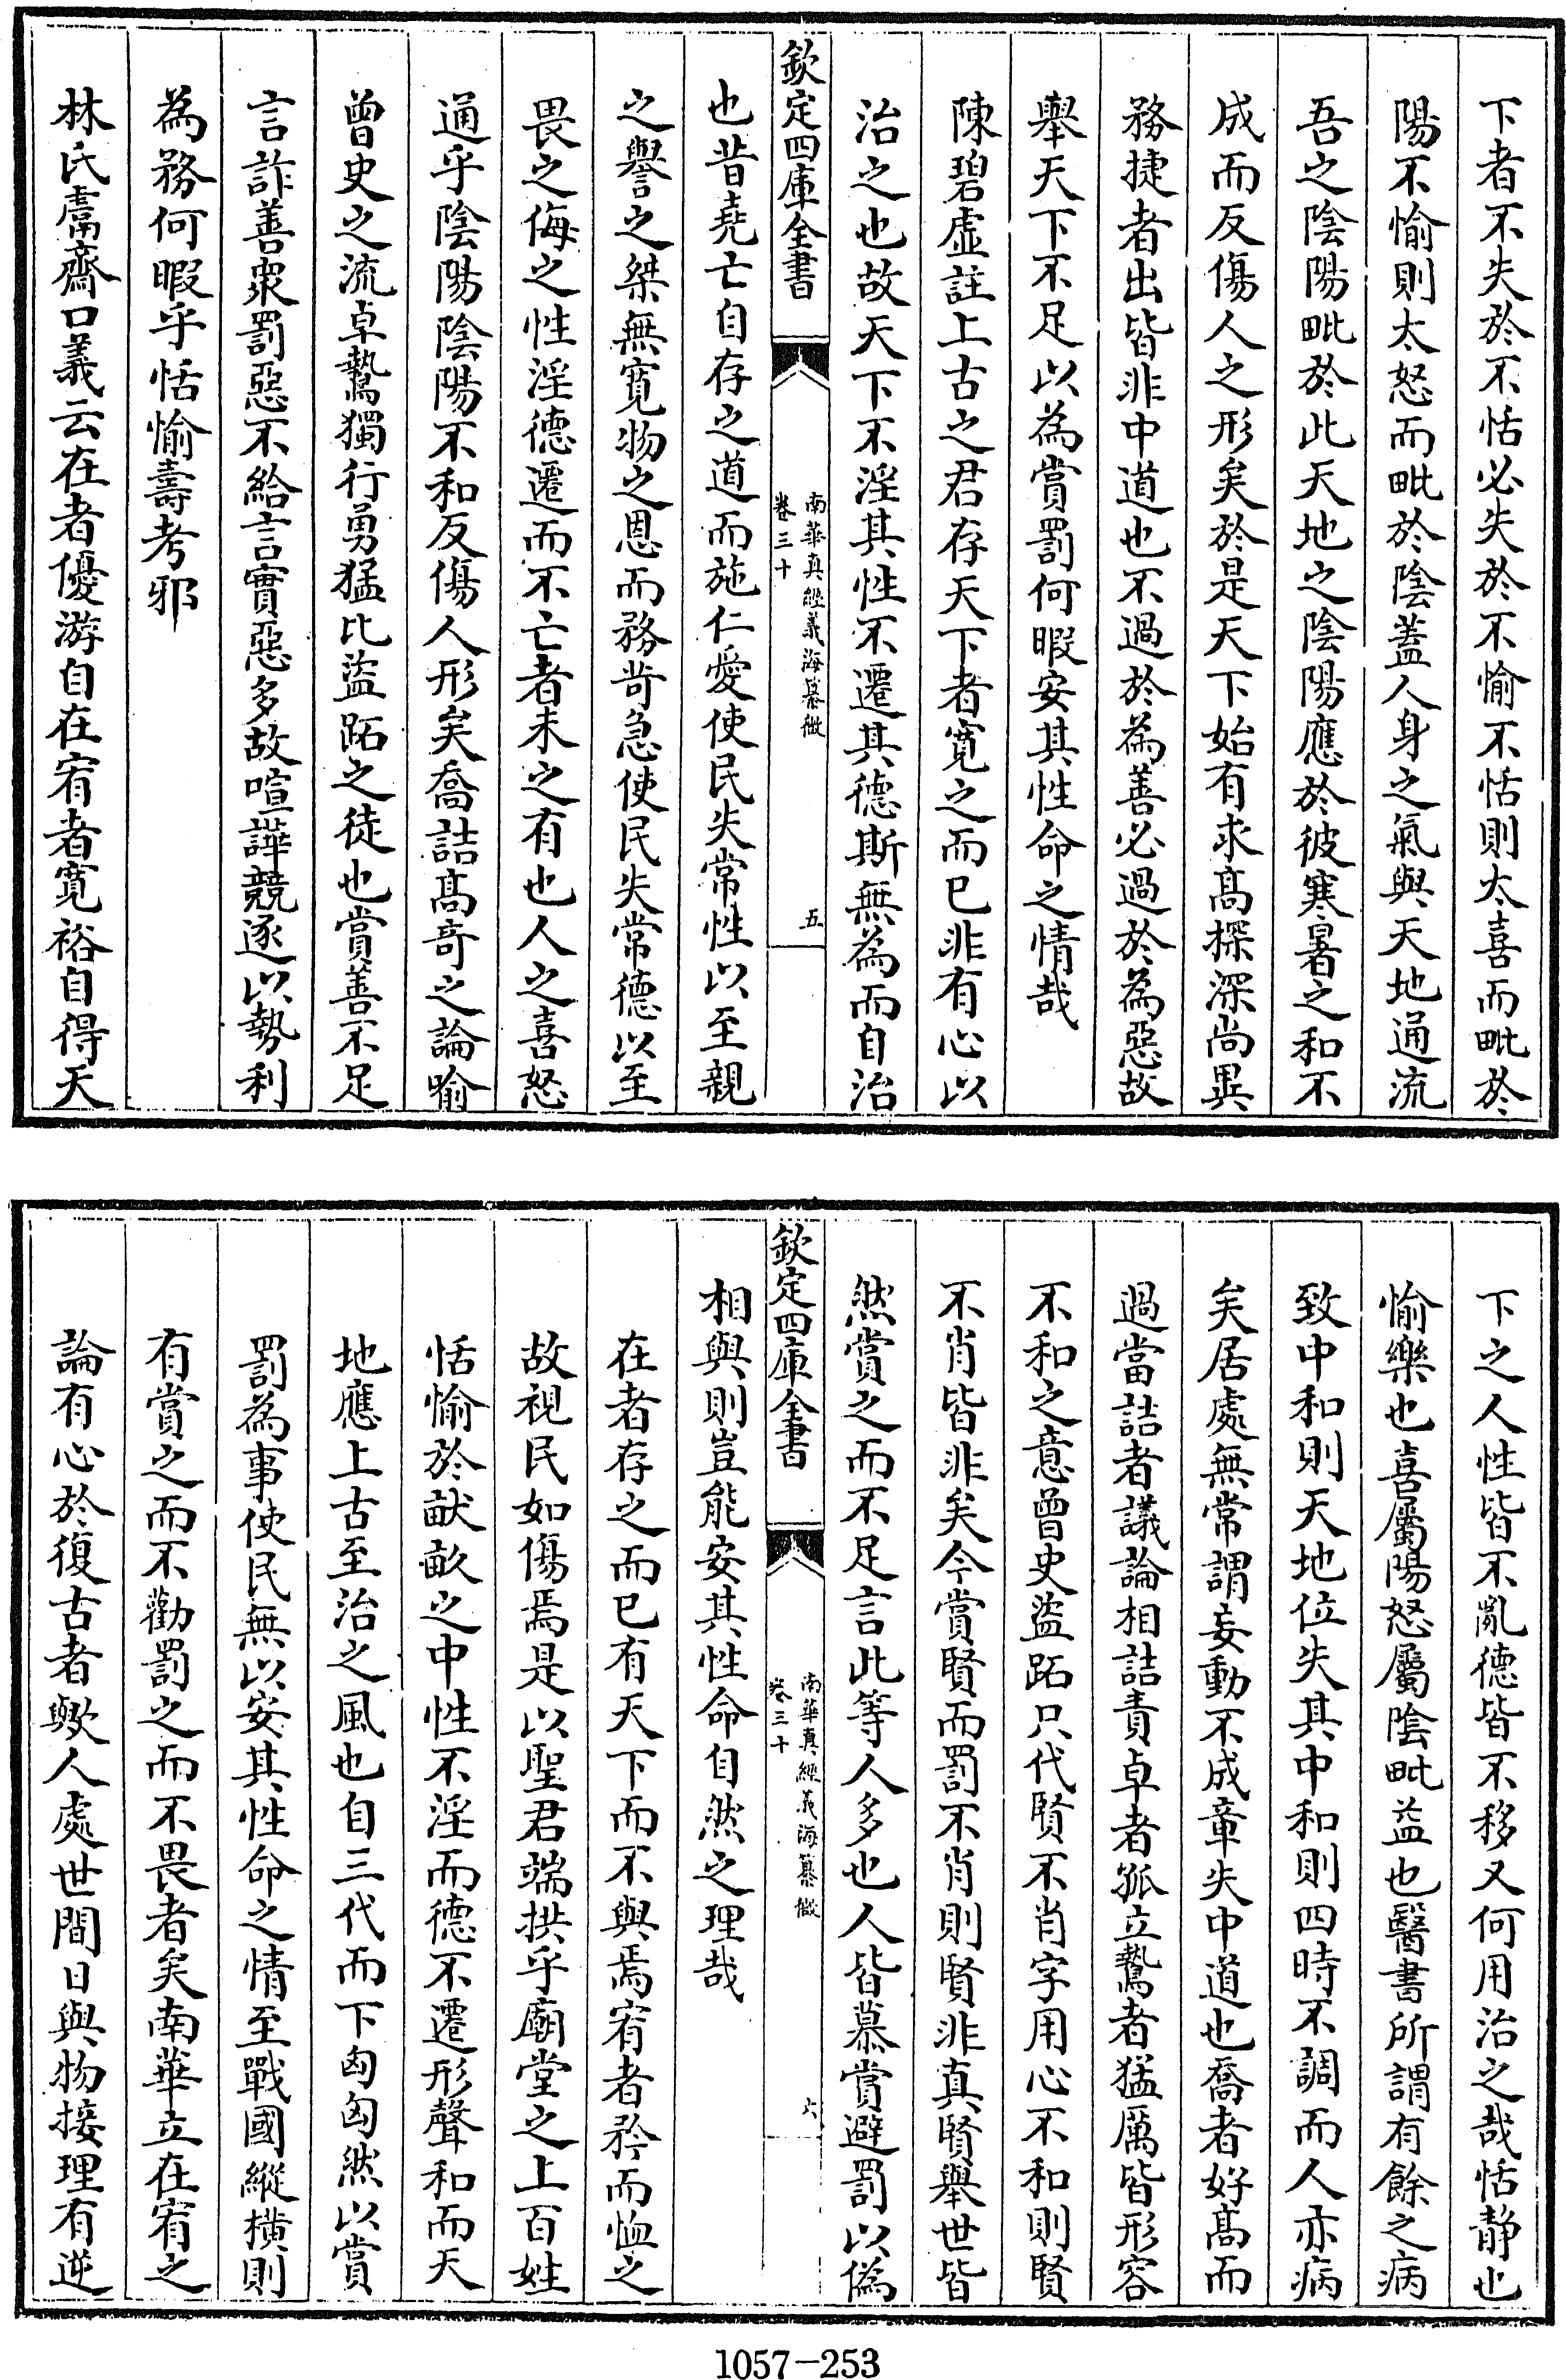 下者不失於不恬必失於不愉不恬則太喜而毗於
陽不愉則太怒而毗於陰蓋人身之氣與天地通流
吾之陰陽毗於此天地之陰陽應於彼寒暑之和不
成而反傷人之形矣於是天下始有求髙探深尚異
務捷者出皆非中道也不過於為善必過於為惡故
舉天下不足以為賞罰何暇安其性命之情哉
陳碧虛註上古之君存天下者寛之而已非有心以
治之也故天下不淫其性不遷其德斯無為而自治
欽定四庫全書
南華真經義海纂微
卷三十
五
也昔堯亡自存之道而施仁愛使民失常性以至親
之譽之桀無寛物之恩而務苛急使民失常德以至
畏之侮之性淫德遷而不亡者未之有也人之喜怒
通乎陰陽陰陽不和反傷人形矣喬詰髙奇之論喻
曾史之流卓鷙獨行勇猛比盜跖之徒也賞善不足
言詐善衆罰惡不給言實惡多故喧譁競逐以勢利
為務何暇乎恬愉壽考邪
林氏鬳齋口義云在者優游自在宥者寛裕自得天
下之人性皆不亂德皆不移又何用治之哉恬静也
愉樂也喜屬陽怒屬陰毗益也醫書所謂有餘之病
致中和則天地位失其中和則四時不調而人亦病
矣居處無常謂妄動不成章失中道也喬者好髙而
過當詰者議論相詰責卓者孤立鷙者猛厲皆形容
不和之意曾史盜跖只代賢不肖字用心不和則賢
不肖皆非矣今賞賢而罰不肖則賢非真賢舉世皆
然賞之而不足言此等人多也人皆慕賞避罰以偽
欽定四庫全書
南華真經義海纂微
卷三十
六
相與則豈能安其性命自然之理哉
在者存之而已有天下而不與焉宥者矜而恤之
故視民如傷焉是以聖君端拱乎廟堂之上百姓
恬愉於畎畝之中性不淫而德不遷形聲和而天
地應上古至治之風也自三代而下匈匈然以賞
罰為事使民無以安其性命之情至戰國縱横則
有賞之而不勸罰之而不畏者矣南華立在宥之
論有心於復古者歟人處世間日與物接理有逆
1057-253